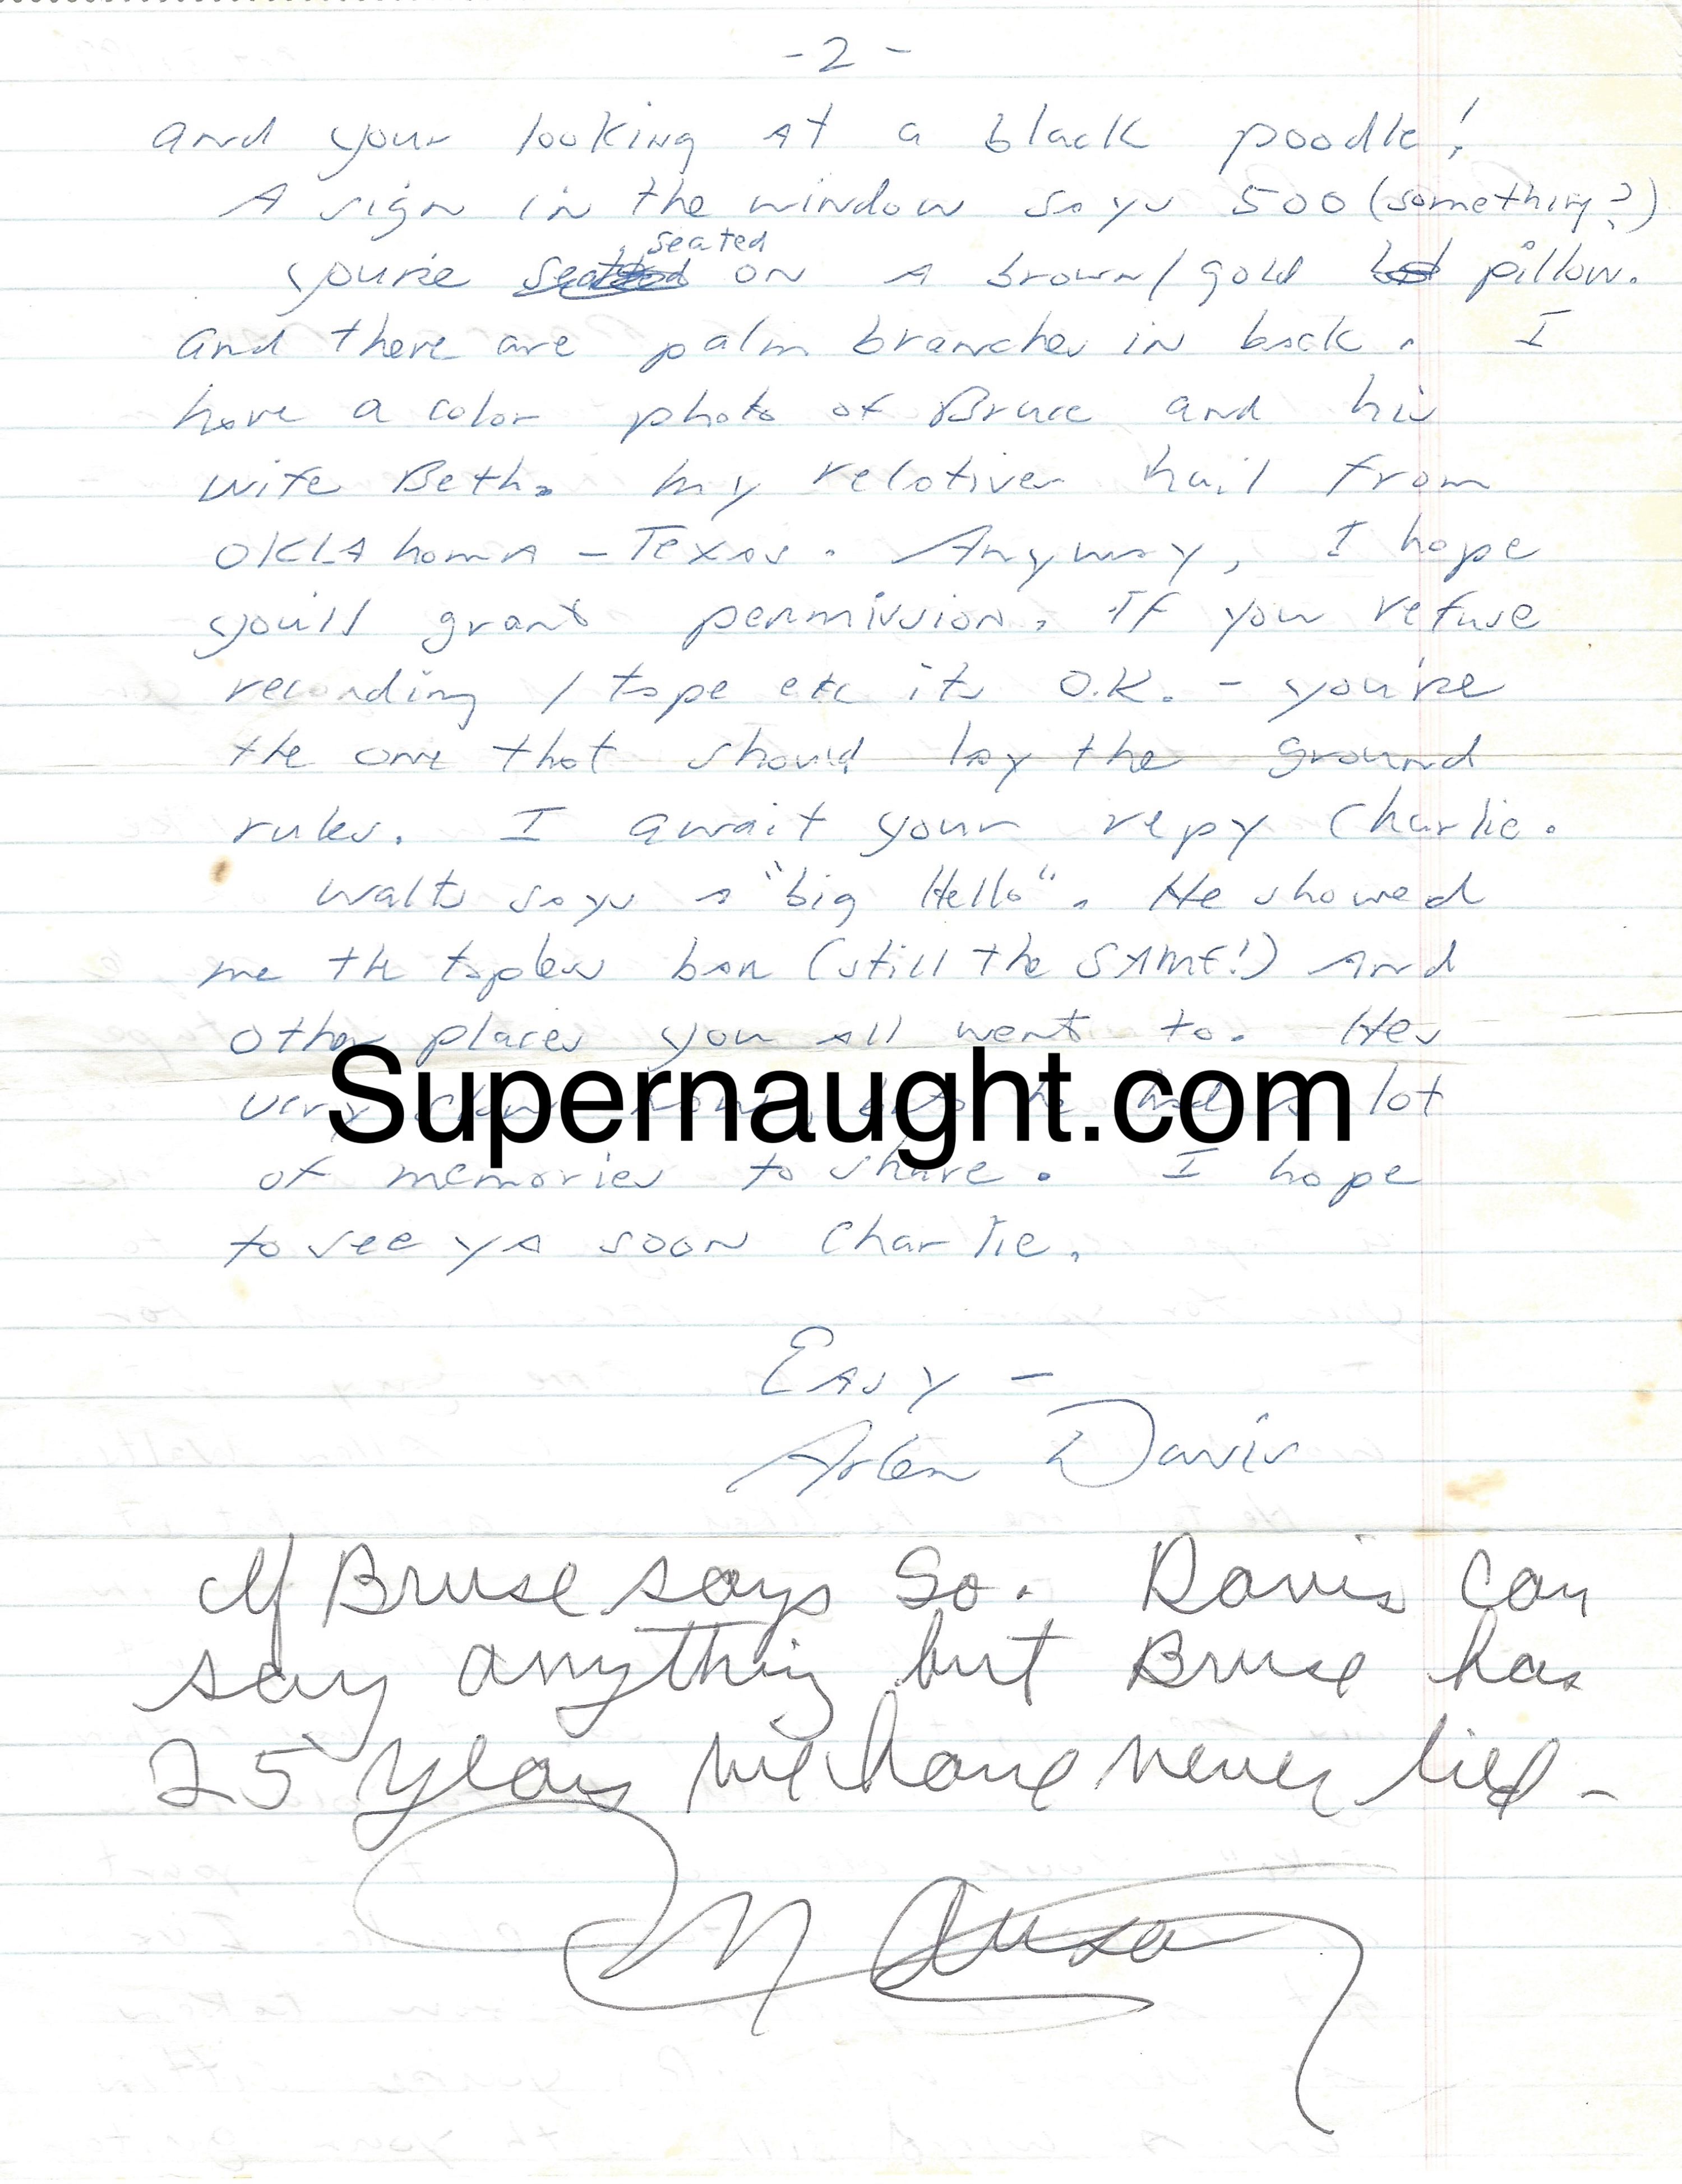 - 2 -
and your looking at a black poodle!
A sign in the window says 500 (something?)
seated
you're on a brown/gold pillow.
and there are palm branches in back. I
have a color photo of Bruce and his
wife Beth. My relatives hail from
OKLAhomA - Texas. Anyway, I hope
you'll grant permission. If you refuse
recording / tape etc its O.K. - you're
the one that should lay the ground
rules. I await your repy Charlie.
Walts says a "big Hello". He showed
me the topless bar (still the SAME!) And
other places you all went to. Hes
very lot
Supernaught.com
of memories to share. I hope
to see ya soon Charlie.
Easy -
Arlen Davis
If Bruse says So. Davis can
say anything but Bruse has
25 years we have never lied -
Manson